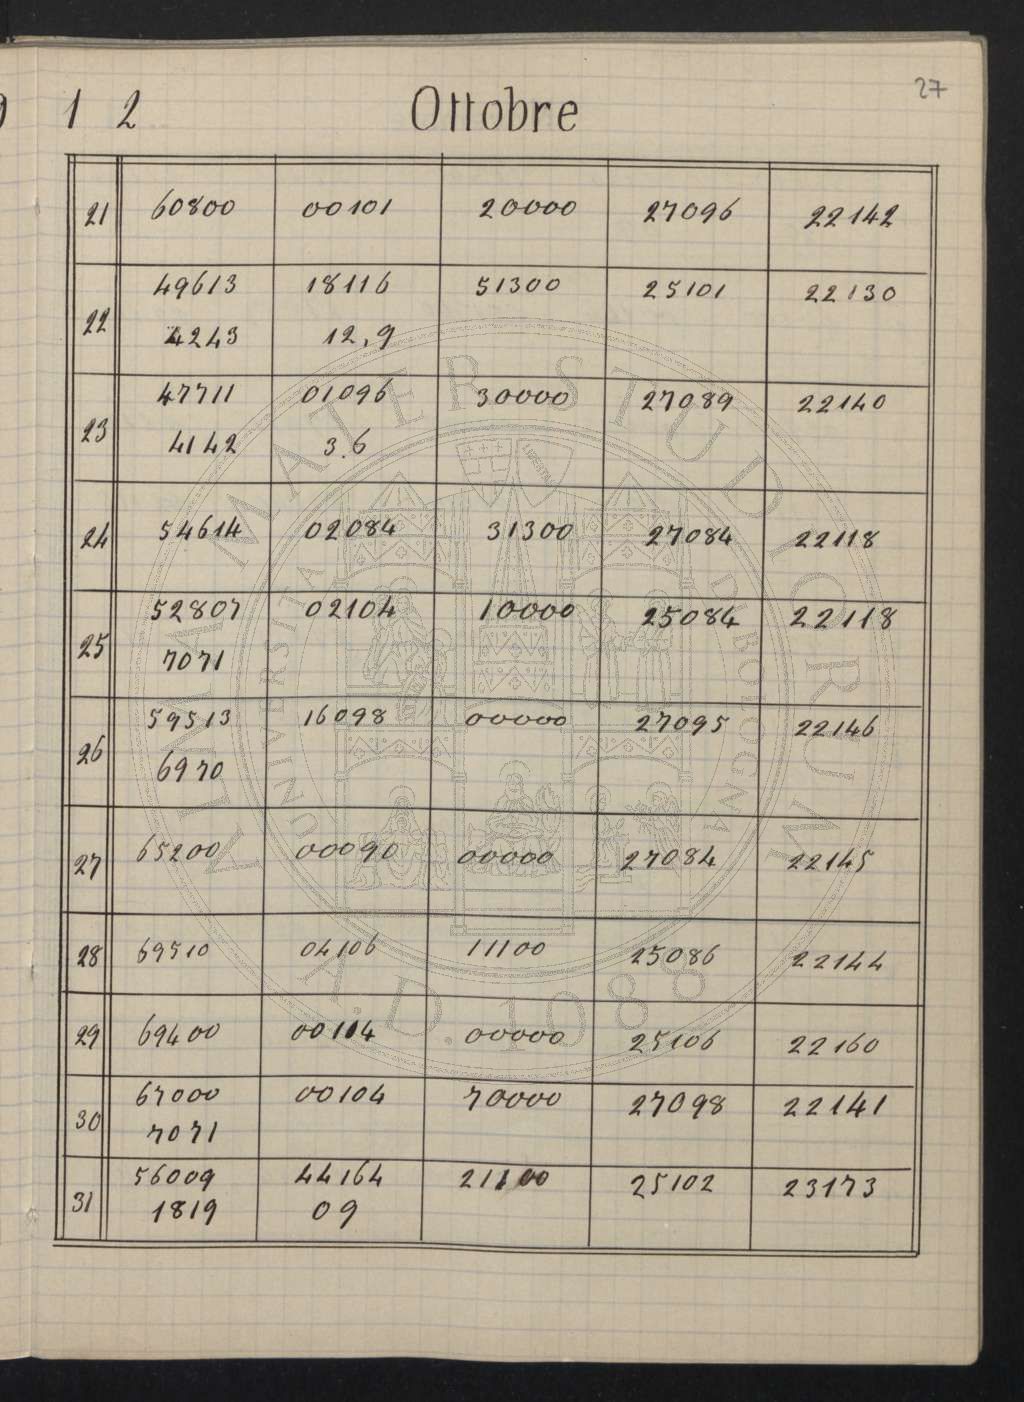 27
1 2 Ottobre
21 60800 00101 20000 27096 22142
22 49613 18116 51300 25101 22130
4243 12,9
23 47711 01096 30000 27089 22140
4142 3.6
24 54614 02084 31300 27084 22118
25 52807 02104 10000 25084 22118
7071
26 59513 16098 00000 27095 22146
6970
27 65200 00090 00000 27084 22145
28 69510 04106 11100 25086 22144
29 69400 00104 00000 25106 22160
30 67000 00104 70000 27098 22141
7071
31 56009 44164 21100 25102 23173
1819 09
ALMA MATER STUDIORUM
UNIVERSITÀ DI BOLOGNA
A.D. 1088